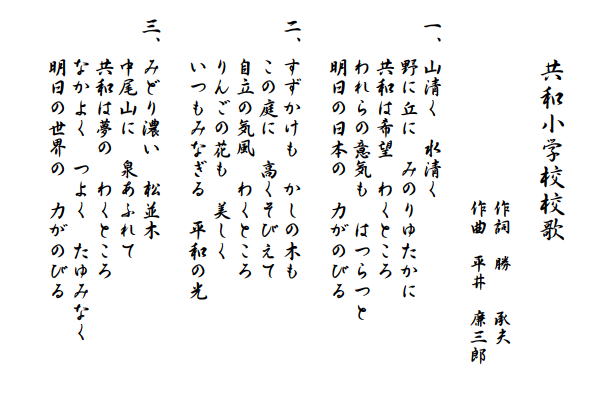 共和小学校校歌
作詞　勝　承夫
作曲　平井　康三郎
一、山清く　水清く
野に丘に　みのりゆたかに
共和は希望　わくところ
われらの意気も　はつらつと
明日の日本の　力がのびる
二、すずかけも　かしの木も
この庭に　高くそびえて
自立の気風　わくところ
りんごの花も　美しく
いつもみなぎる　平和の光
三、みどり濃い　松並木
中尾山に　泉あふれて
共和は夢の　わくところ
なかよく　つよく　たゆみなく
明日の世界の　力がのびる